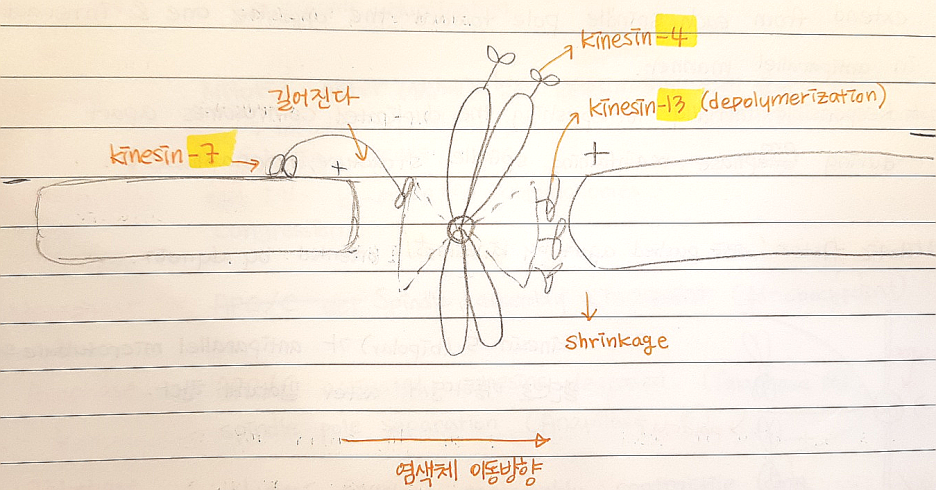 kinesin-4
길어진다
kinesin-13 (depolymerization)
kinesin-7
+
+
shrinkage
염색체 이동방향